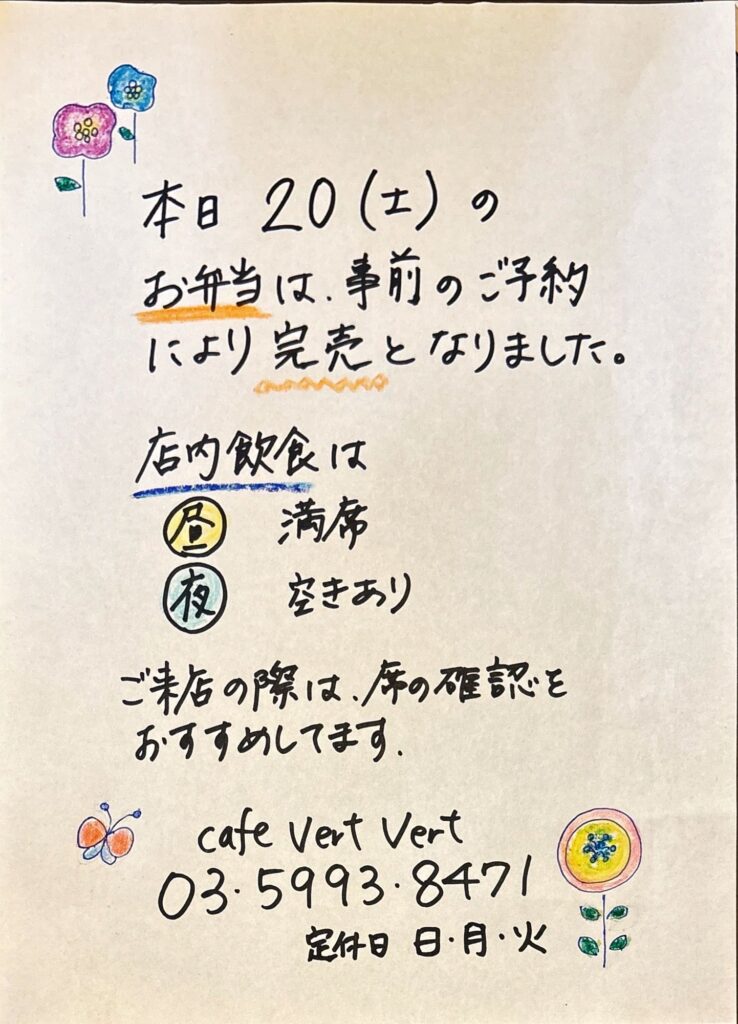 本日 20(土)の
お弁当は、事前のご予約
により完売となりました。
店内飲食は
昼 満席
夜 空きあり
ご来店の際は、席の確認を
おすすめしてます.
cafe Vert Vert
03・5993・8471
定休日 日・月・火